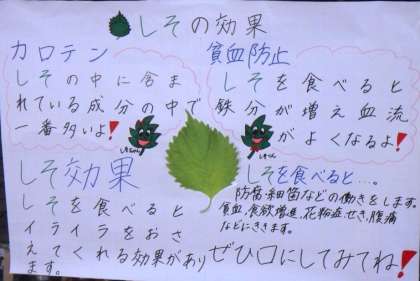 しその効果
カロテン
しその中に含ま
れている成分の中で
一番多いよ!
貧血防止
しそを食べると
鉄分が増え血流
がよくなるよ!
しそ効果
しそを食べると
イライラをおさ
えてくれる効果があり
ます。
しそを食べると…。
防腐・細菌などの働きをします。
貧血、食欲増進、花粉症せき、腹痛
などにききます。
ぜひ口にしてみてね!